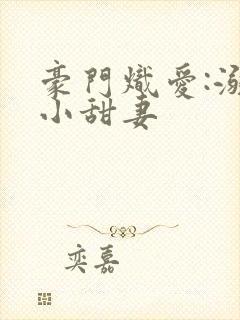 豪門熾愛:溺
小甜妻
奕嘉